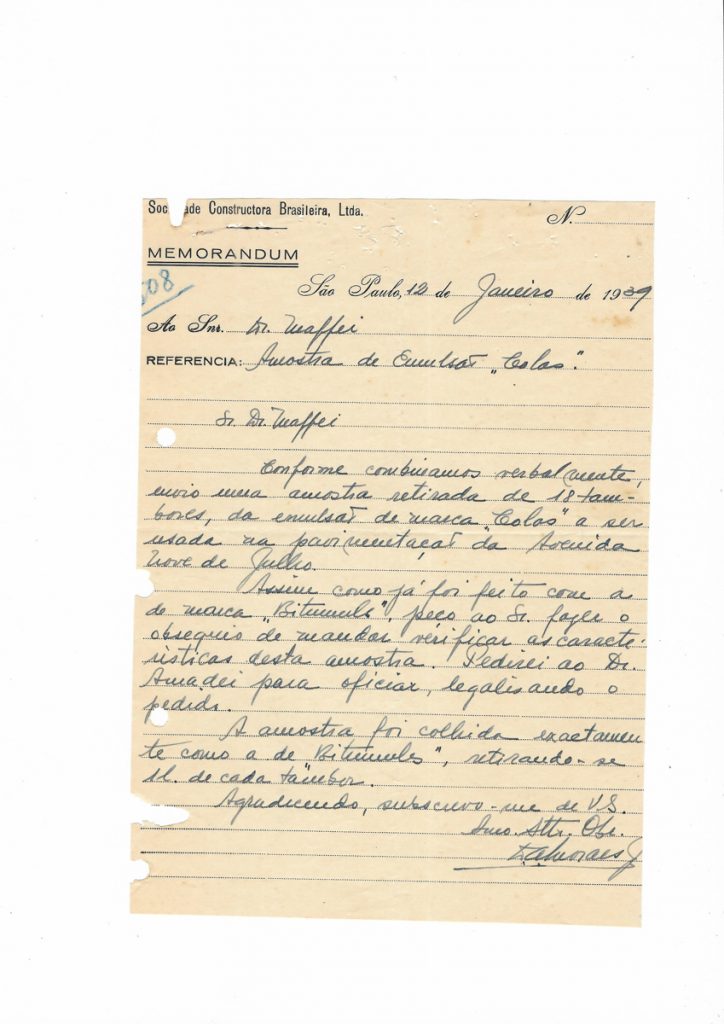 Sociedade Constructora Brasileira, Ltda.
N.
MEMORANDUM
508
São Paulo, 12 de Janeiro de 1939
Ao Snr. Dr. Maffei
REFERENCIA: Amostra de Emulsão „Colas".
Sr. Dr. Maffei
Conforme combinamos verbalmente,
envio uma amostra retirada de 18 tam-
bores, da emulsão de marca „Colas" a ser
usada na pavimentação da Avenida
Nove de Julho.
Assim como já foi feito com a
de marca „Bitumuls", peço ao Sr. fazer o
obsequio de mandar verificar as caracte-
risticas desta amostra. Pedirei ao Dr.
Amadei para oficiar, legalisando o
pedido.
A amostra foi colhida exactamen
te como a de „Bitumuls", retirando-se
1l. de cada tambor.
Agradecendo, subscrevo-me de V.S.
Amo. Attr. Obr.